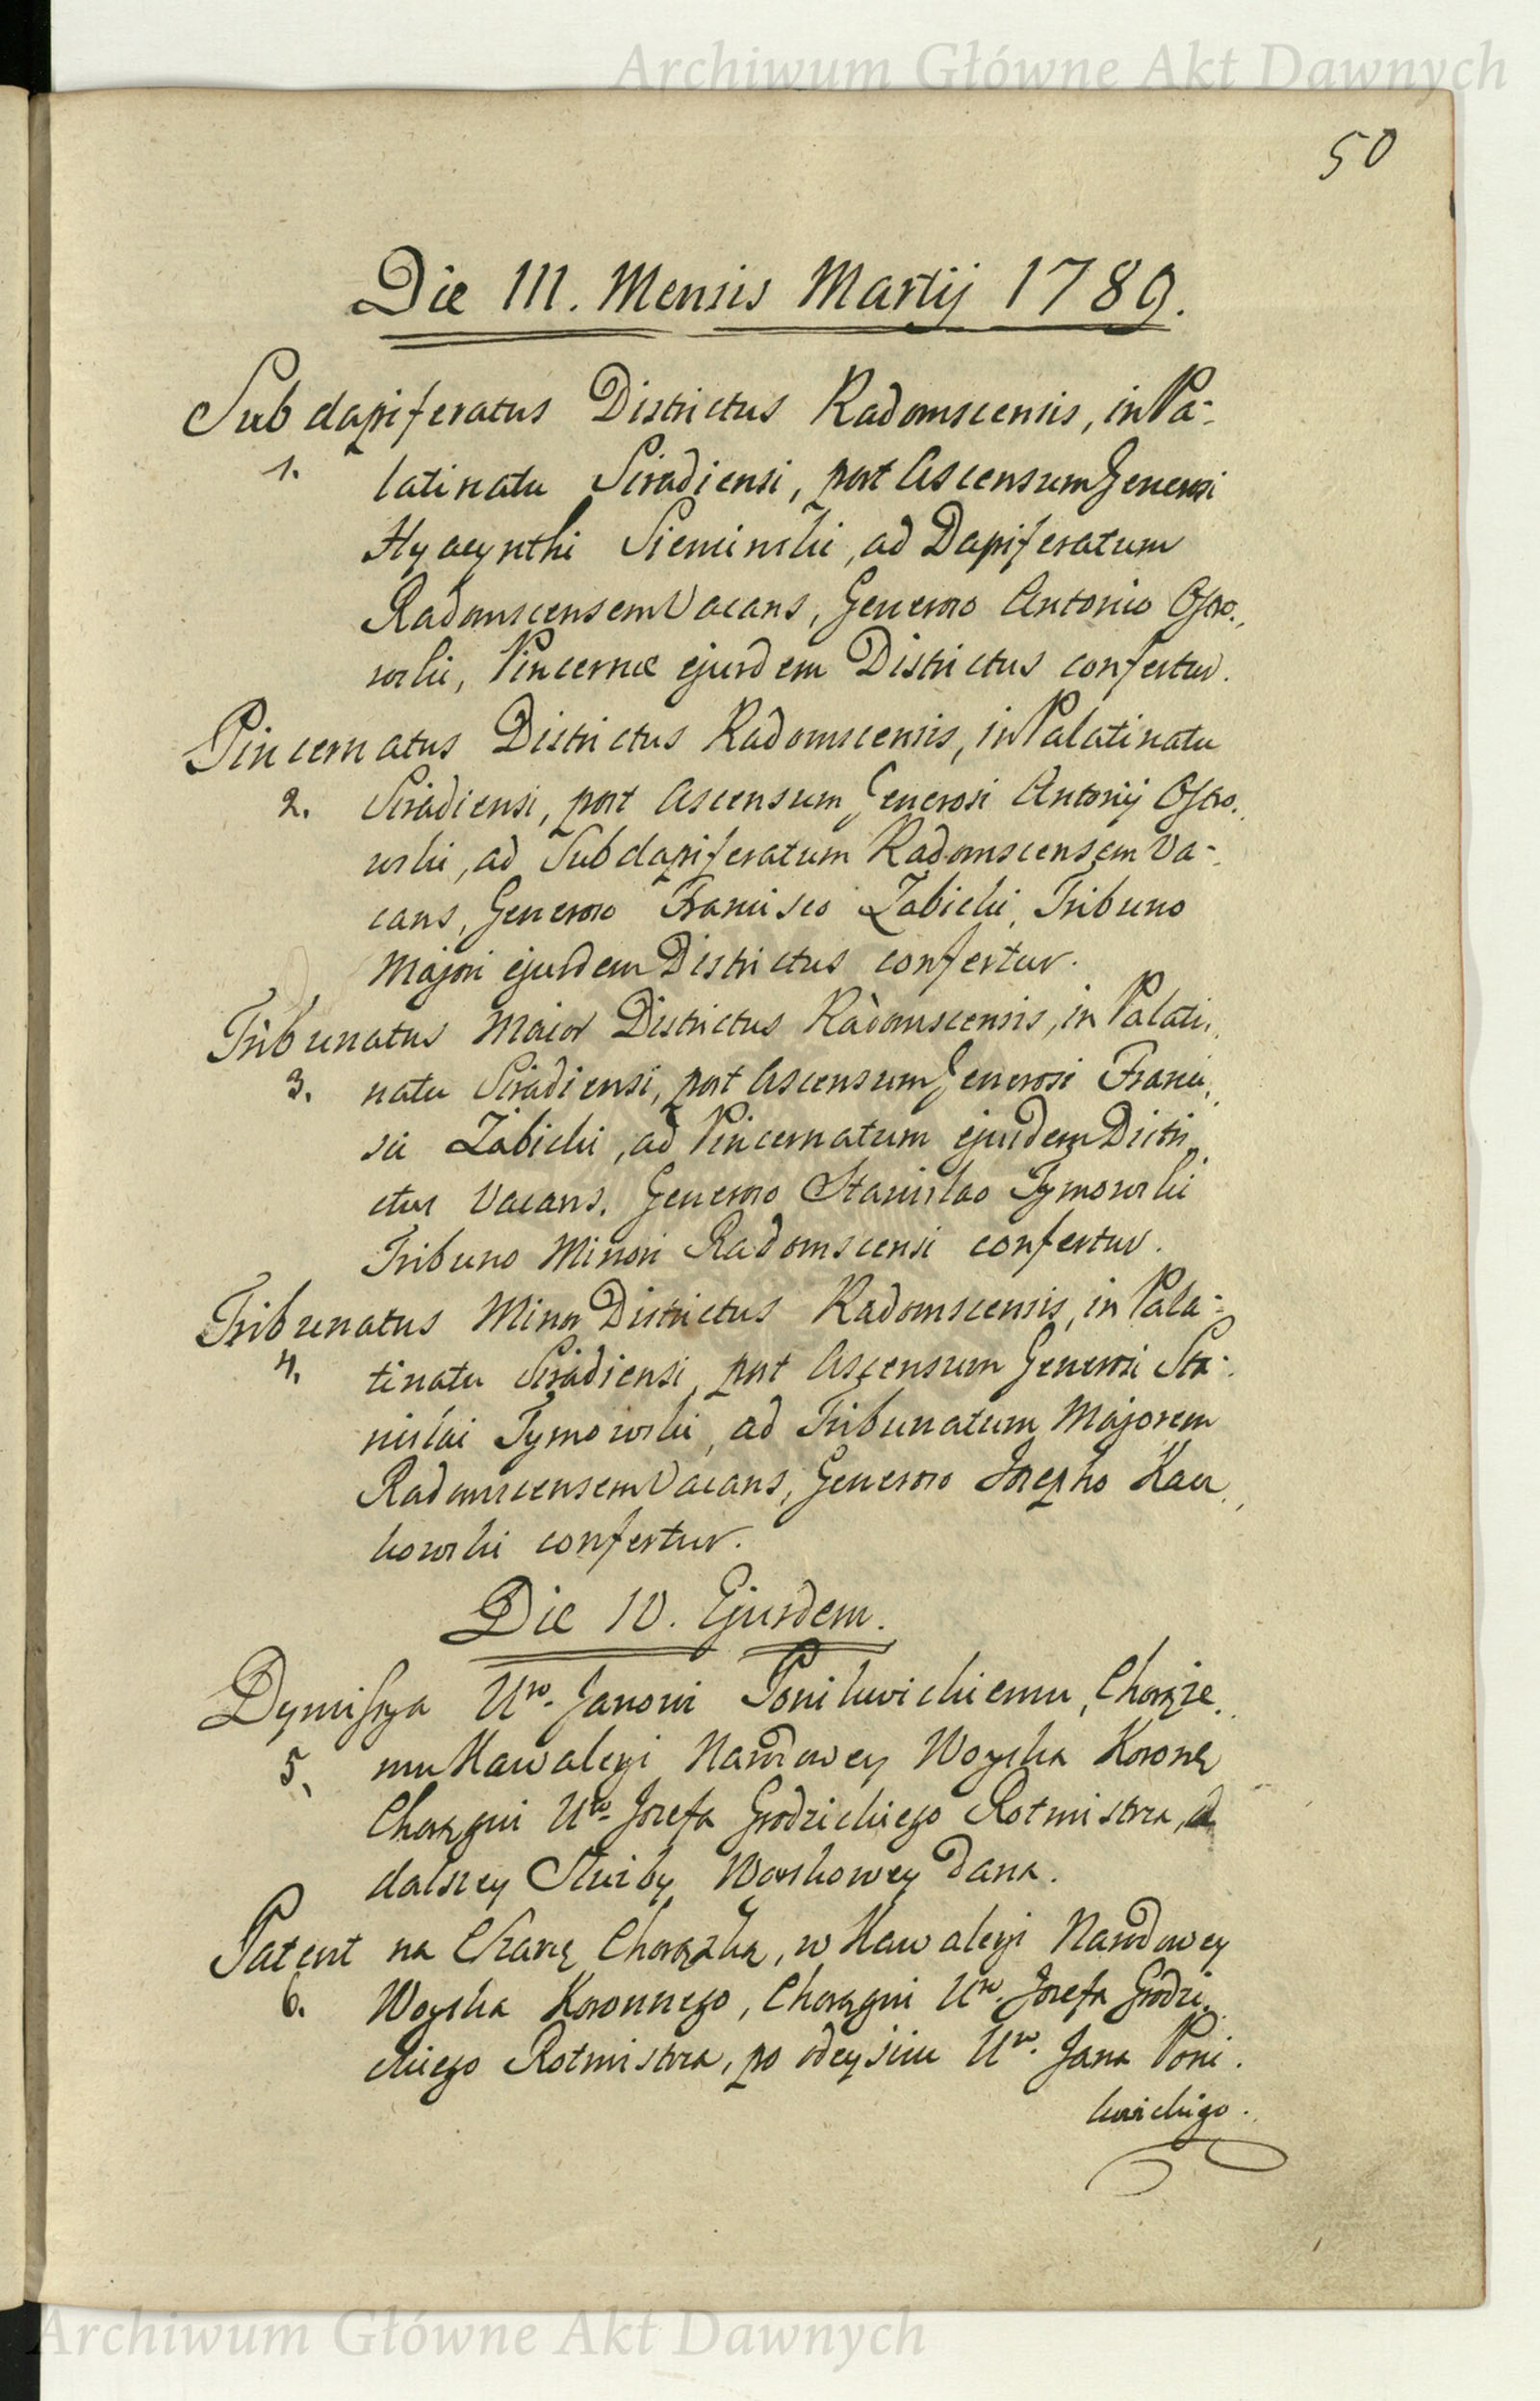 Archiwum Główne Akt Dawnych
50
Die III. Mensis Martij 1789.
Subdapiferatus Districtus Radomscensis, in Pa-
1. latinatu Siradiensi, post Ascensum Generosi
Hyacynthi Siemiński, ad Dapiferatum
Radomscensem Vacans, Generoso Antonio Ostro-
wski, Pincernæ ejusdem Districtus confertur.
Pincernatus Districtus Radomscensis, in Palatinatu
2. Siradiensi, post Ascensum Generosi Antonij Ostro-
wski, ad Subdapiferatum Radomscensem Va-
cans, Generoso Francisco Żabicki, Tribuno
Majori ejusdem Districtus confertur.
Tribunatus Maior Districtus Radomscensis, in Palati-
3. natu Siradiensi, post Ascensum Generosi Franci-
sci Żabicki, ad Pincernatum ejusdem Distri-
ctus Vacans, Generoso Stanislao Tymowski
Tribuno Minori Radomscensi confertur.
Tribunatus Minor Districtus Radomscensis, in Pala-
4. tinatu Siradiensi, post Ascensum Generosi Sta-
nislai Tymowski, ad Tribunatum Majorem
Radomscensem Vacans, Generoso Josepho
kowski confertur.
Die 10. Ejusdem.
Dymissya Uro. Janowi Ponikwickiemu, Chorąże-
5. mu Kawaleryi Narodowey Woyska Koronn
Chorągwi Uro. Jozefa Grodzickiego Rotmistrza, od
dalszey Służby Woyskowey dana.
Patent na Szarżę Chorążego, w Kawaleryi Narodowey
6. Woyska Koronnego, Chorągwi Uro. Jozefa Grodzi-
ckiego Rotmistrza, po odeyściu Uro. Jana Poni-
kwickigo.
Archiwum Główne Akt Dawnych